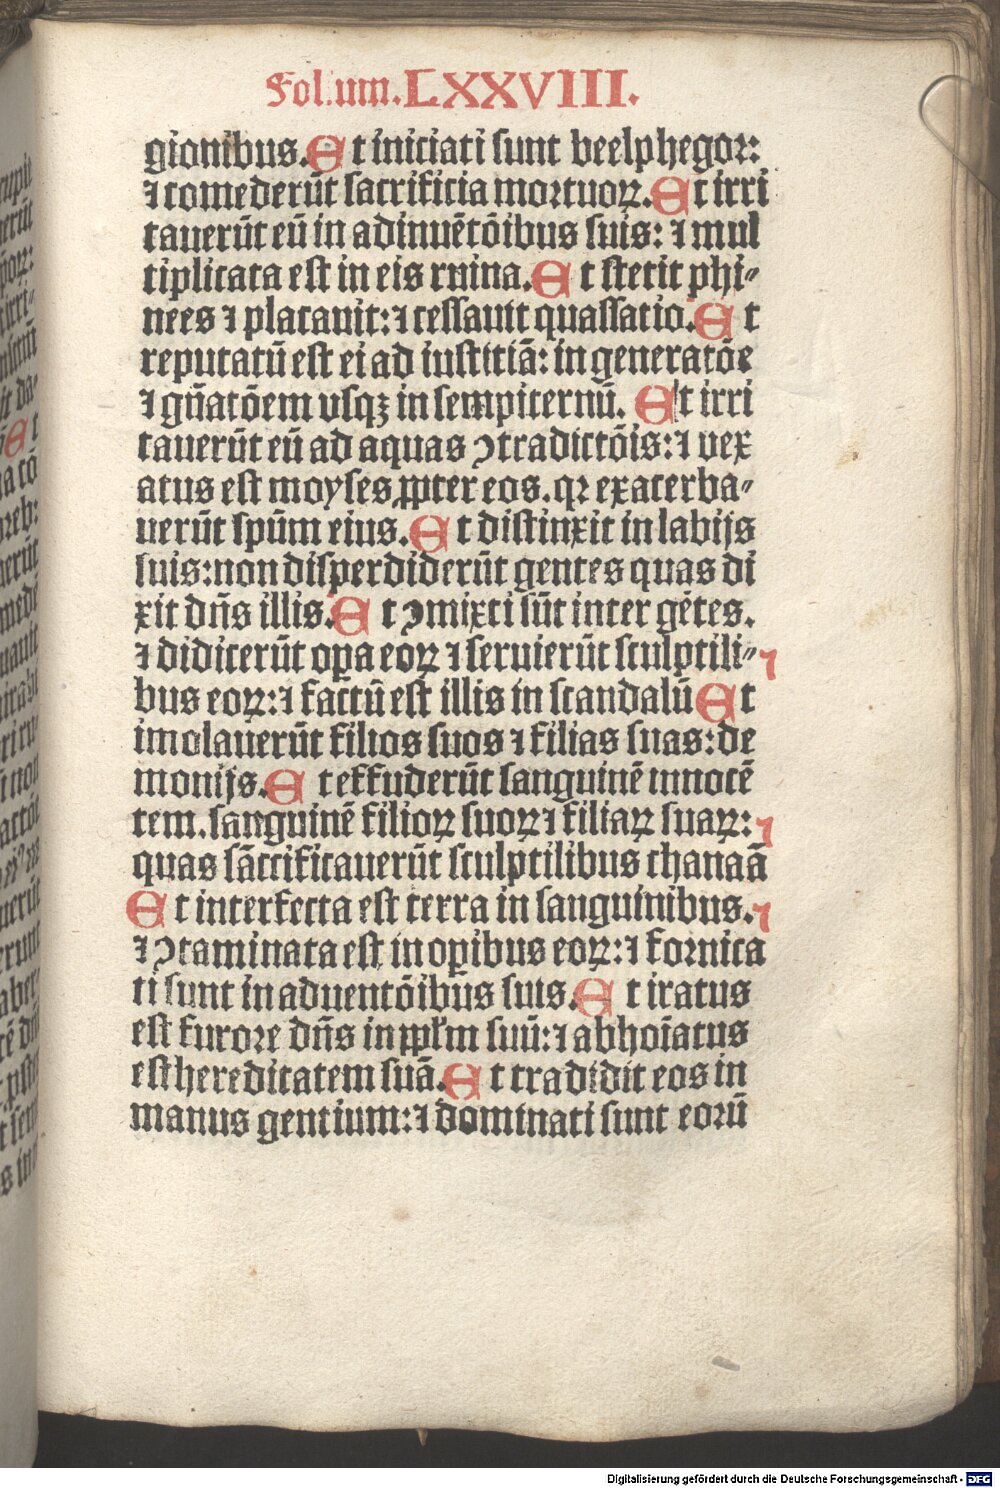 Folium. LXXVIII.
gionibus. Et iniciati sunt beelphegor:
⁊ comederūt sacrificia mortuoꝝ. Et irri
tauerūt eū in adinuētōibus suis: ⁊ mul
tiplicata est in eis ruina. Et stetit phi⸗
nees ⁊ placauit: ⁊ cessauit quassatio. Et
reputatū est ei ad iustitiā: in generatōe
⁊ gn̄atōem vsqꝫ in sempiternū. Et irri
tauerūt eū ad aquas ↄtradictōis: ⁊ vex
atus est moyses ꝓpter eos. qꝛ exacerba⸗
uerūt spūm eius. Et distinxit in labijs
suis: non disperdiderūt gentes quas di
xit dn̄s illis. Et ↄmixti sūt inter gētes.
⁊ didicerūt oꝑa eoꝝ ⁊ seruierūt sculptili⸗
bus eoꝝ: ⁊ factū est illis in scandalū Et
imolauerūt filios suos ⁊ filias suas: de
monijs. Et effuderūt sanguinē innocē
tem. sanguinē filioꝝ suoꝝ ⁊ filiaꝝ suaꝝ:
quas sāccificauerūt sculptilibus chanaā
Et interfecta est terra in sanguinibus.
⁊ ↄtaminata est in oꝑibus eoꝝ: ⁊ fornica
ti sunt in aduentōibūs suis. Et iratus
est furore dn̄s in ꝓpl̄m suū: ⁊ abhoīatus
est hereditatem suā. Et tradidit eos in
manus gentium: ⁊ dominati sunt eorū
Digitalisierung gefördert durch die Deutsche Forschungsgemeinschaft - DFG